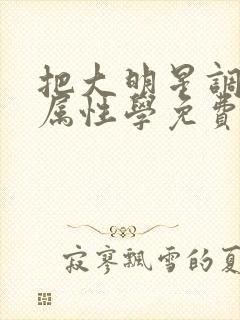 把大明星調
属性學免費
寂寥飄雪的夏